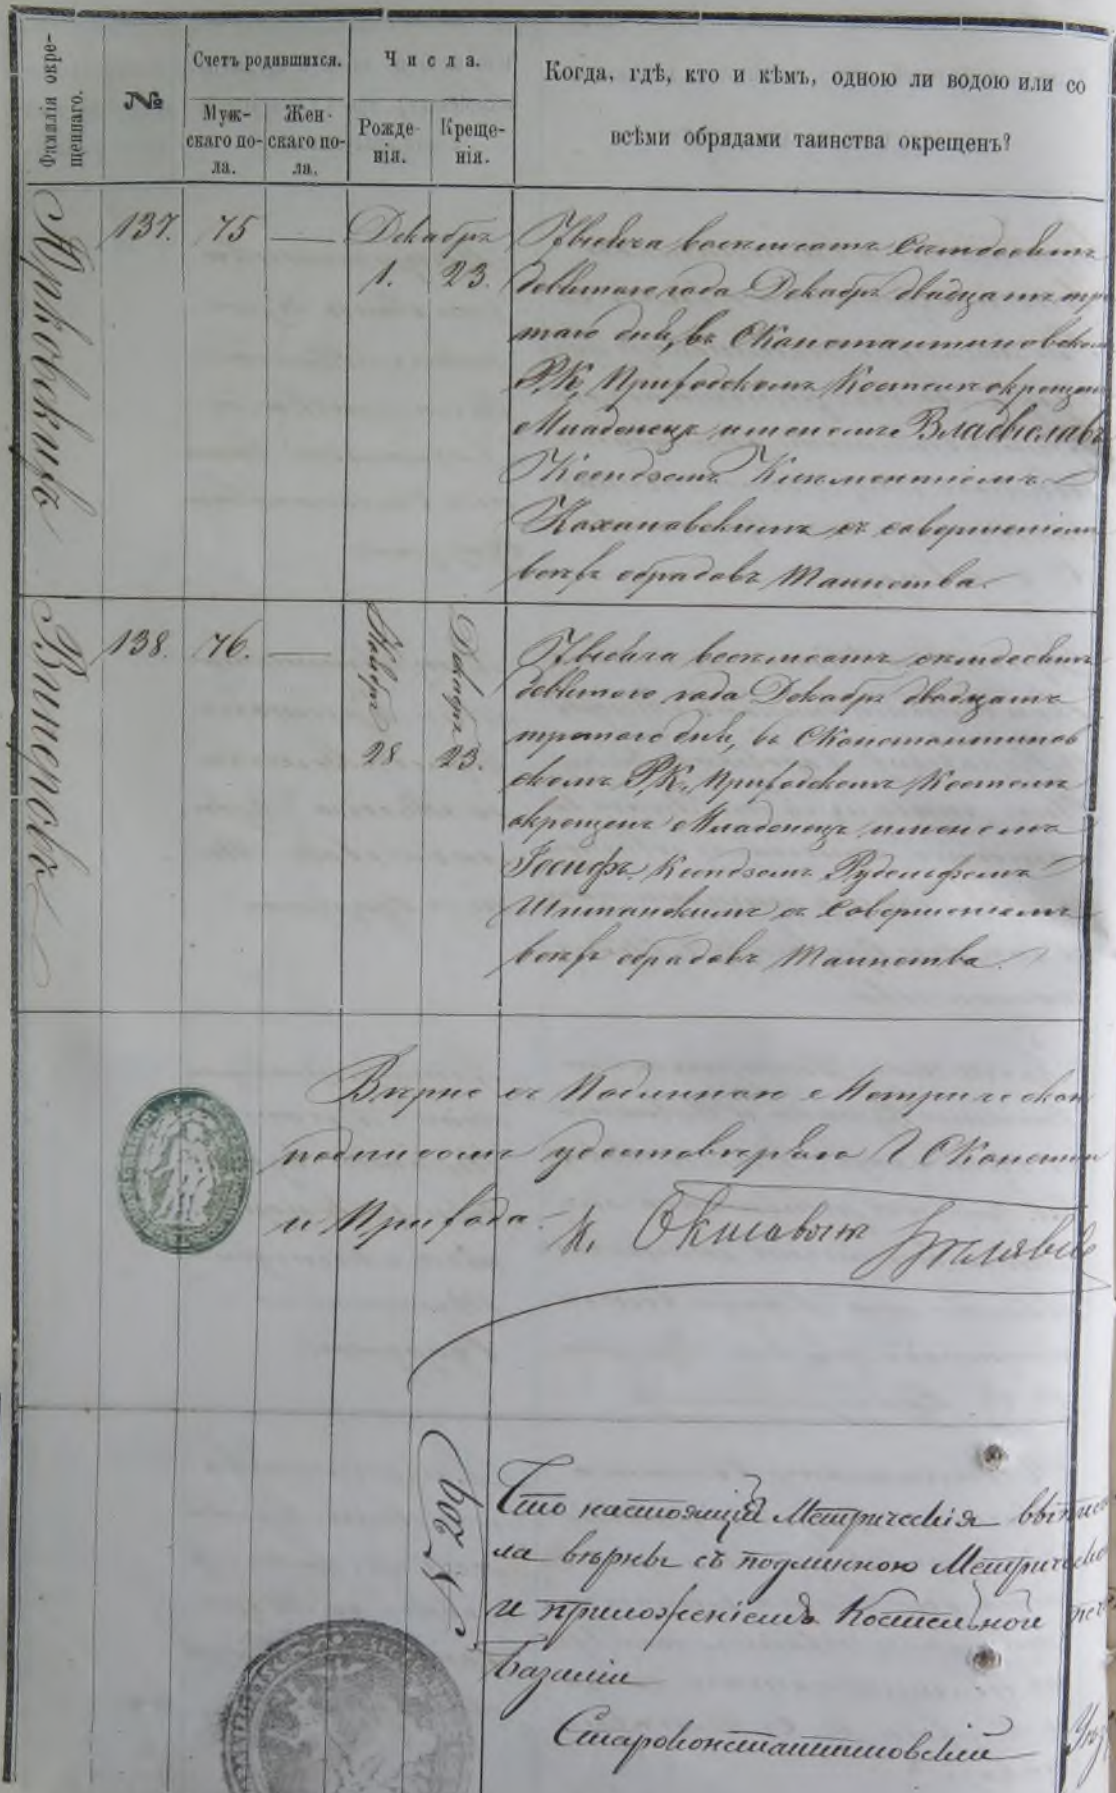 Фамилія окре-
щеннаго.
№
Счетъ родившихся.
Муж-
скаго по-
ла.
Жен-
скаго по-
ла.
Числа.
Рожде-
нія.
Креще-
нія.
Когда, гдѣ, кто и кѣмъ, одною ли водою или со
всѣми обрядами таинства окрещенъ?
137.
75
Декабря
1.
23.
Тысяча восемьсотъ семьдесятъ
девятаго года Декабря двадцать тре
таго дня, въ СКонстантиновском
Р.К. Приходскомъ Костелѣ окрещен
Младенецъ именемъ Владыславъ
Ксендзомъ Климентіемъ
Кохановскимъ съ совершеніем
всѣхъ обрядовъ Таинства.
138.
76.
Ноября
28
Декабря
23.
Тысяча восемьсотъ семьдесятъ
девятаго года Декабря двадцать
третаго дня, въ СКонстантинов
скомъ Р.К. Приходскомъ Костелѣ
окрещенъ Младенецъ именемъ
Іосифъ Ксендзомъ Рудольфомъ
съ совершеніемъ
всѣхъ обрядовъ Таинства.
Вѣрно съ Подлинною Метрическою
подписомъ удостовѣряю СКонстан
и Прихода.
№ 209
Что настоящая Метрическія выписи
ла вѣрны съ подлинною Метрическо
и приложеніемъ Костельной печ
Базалія
Староконстантиновскій Уѣз